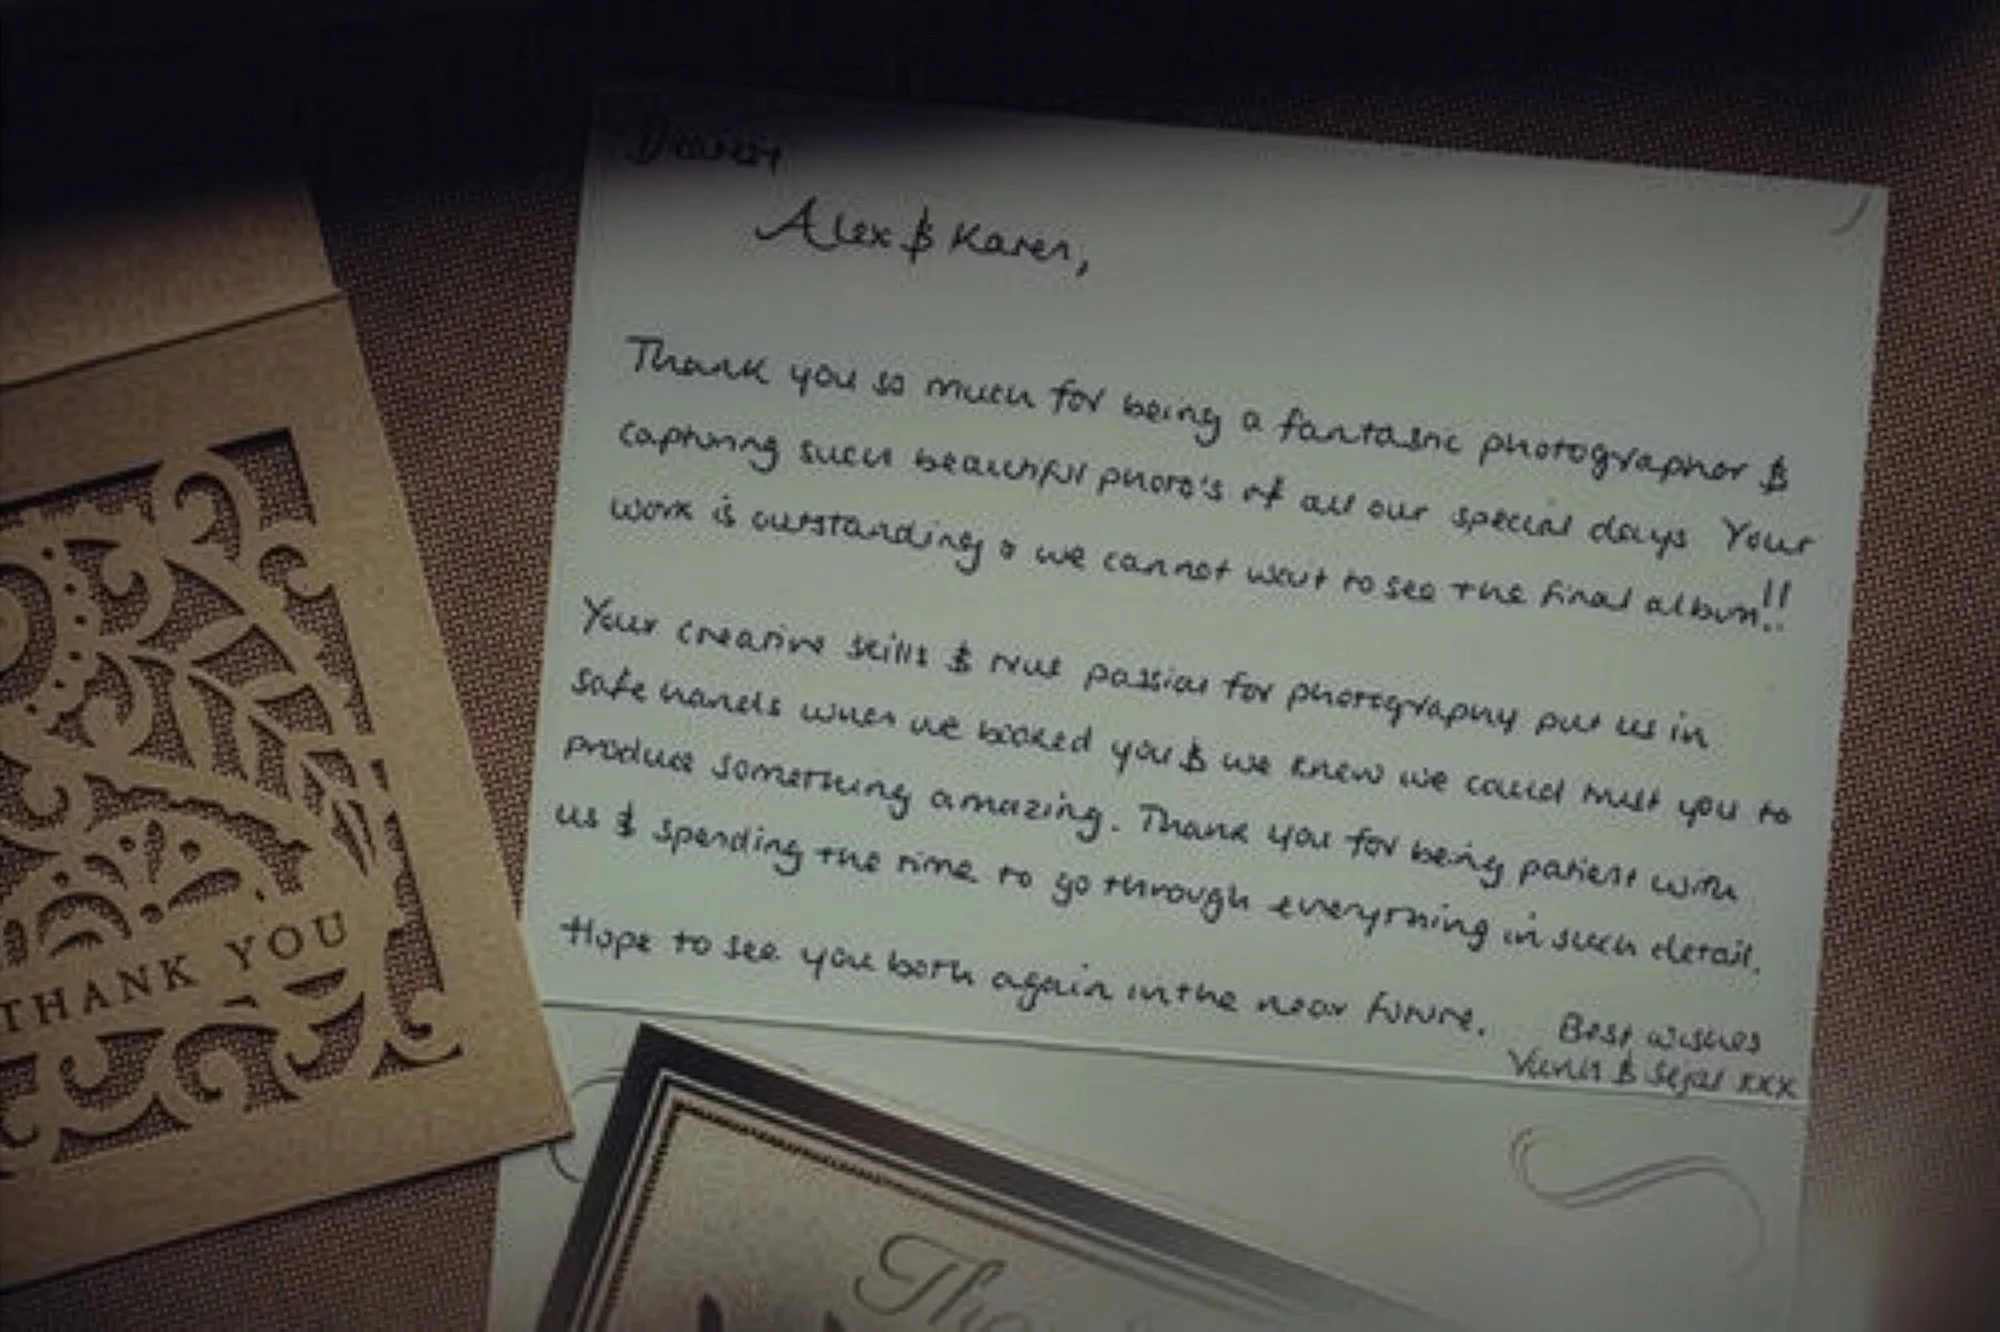 Alex & Karen,
Thank you so much for being a fantastic photographer &
capturing such beautiful photo's of all our special days Your
work is outstanding & we cannot wait to see the final album!!
Your creative skills & true passion for photography put us in
safe hands when we booked you & we knew we could trust you to
produce something amazing. Thank you for being patient with
us & spending the time to go through everything in such detail.
Hope to see you both again in the near future.
Best wishes
& Sejal xxx
THANK YOU